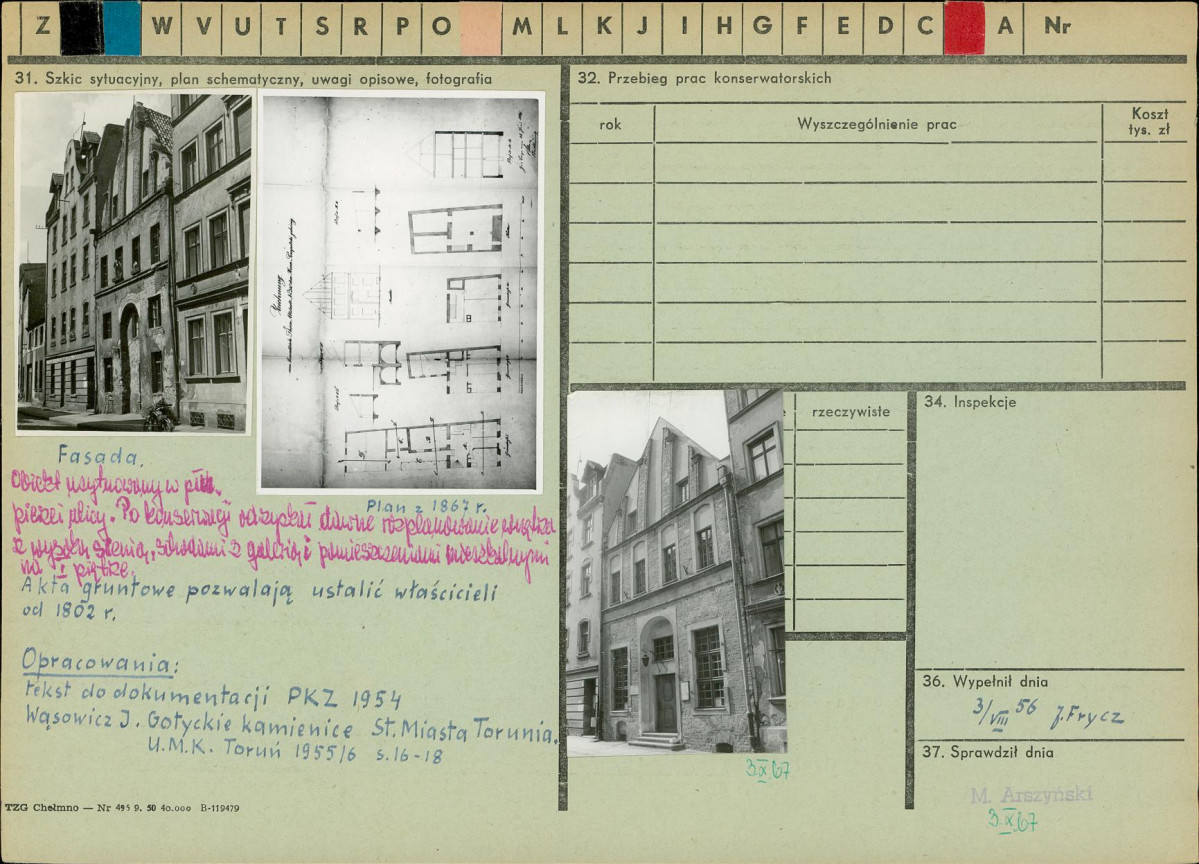 Z W V U T S R P O M L K J I H G F E D C A Nr
31. Szkic sytuacyjny, plan schematyczny, uwagi opisowe, fotografia
Fasada.
Plan z 1867 r.
Obiekt usytuowany w płn.
pierzei ulicy. Po konserwacji odzyskał dawne rozplanowanie wnętrza
z wysoką sienią, schodami z galerią i pomieszczeniami mieszkalnymi
na I piętrze.
Akta gruntowe pozwalają ustalić właścicieli
od 1802 r.
Opracowania:
tekst do dokumentacji PKZ 1954
Wąsowicz J. Gotyckie kamienice St. Miasta Torunia.
U.M.K. Toruń 1955/6 s. 16-18
TZG Chełmno — Nr 495 9. 50 40.000 B-119479
32. Przebieg prac konserwatorskich
rok
Wyszczególnienie prac
Koszt
tys. zł
rzeczywiste
3.X.67
34. Inspekcje
36. Wypełnił dnia
3/VIII 56 J. Frycz
37. Sprawdził dnia
M. Arszyński
3.X.67